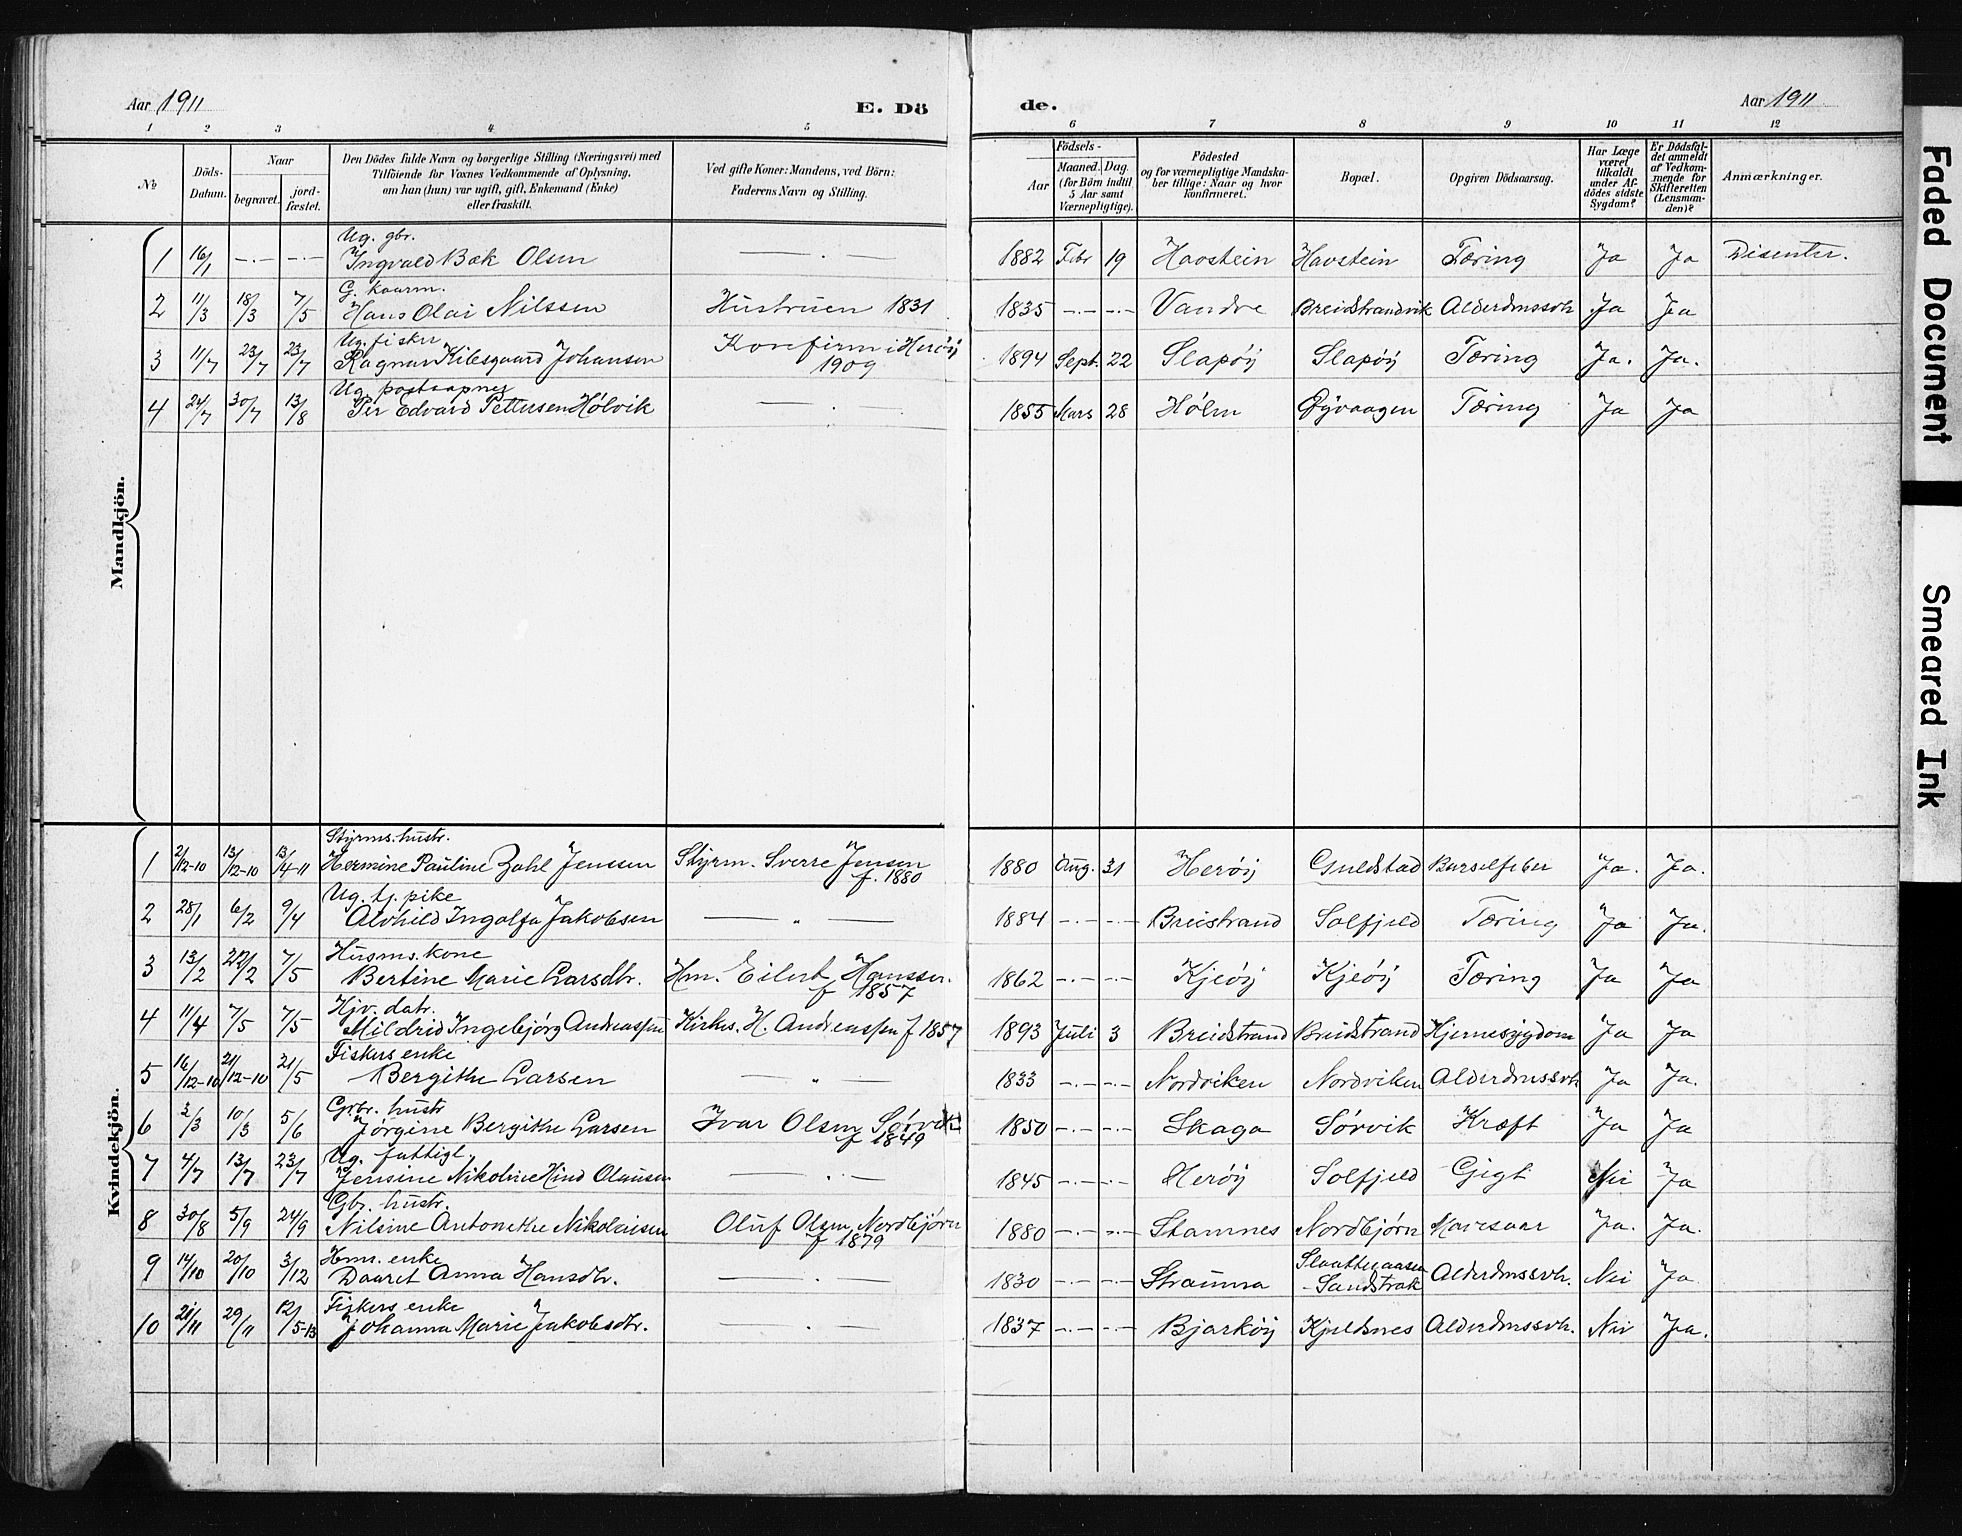 Aar 1911 E. Dö
de. Aar 1911
1 2 3 4 5 6 7 8 9 10 11 12
№
Döds-Datum.
Naar
begravet.
jord-fæstet.
Den Dödes fulde Navn og borgerlige Stilling (Næringsvei) med
Tilföiende for Voxnes Vedkommende af Oplysning,
om han (hun) var ugift, gift, Enkemand (Enke)
eller fraskilt.
Ved gifte Koner: Mandens, ved Börn:
Faderens Navn og Stilling.
Födsels-
Aar
Maaned. Dag.
(for Börn indtil
5 Aar samt
Værnepligtige).
Födested
og for værnepligtige Mandska-
ber tillige: Naar og hvor
konfirmeret.
Bopæl.
Opgiven Dödsaarsag.
Har Læge
været
tilkaldt
under Af-
dödes sidste
Sygdom?
Er Dödsfal-
det anmeldt
af Vedkom-
mende for
Skifteretten
(Lensman-
den)?
Anmærkninger.
Mandkjön.
Ug. gbr.
1 16/1 -.- -.- Ingvald Bæk Olsen — . — 1882 Febr 19 Havstein Havstein Tæring Ja Ja Disenter.
G. kaarm.
2 11/3 18/3 7/5 Hans Olai Nilssen Hustruen 1831 1835 -.- -.- Vandve Breidstrandvik Alderdmssvh Ja Ja
Ug. fisker Konfirm i Herøy
3 11/7 23/7 23/7 Ragnar Kilesgaard Johansen 1909 1894 Sept. 22 Slapøy Slapøy Tæring Ja. Ja.
Ug. postaapner
4 24/7 30/7 13/8 Per Edvard Pettersen Hølvik — . — 1855 Mars 28 Hølm Dyvaagen Tæring Ja Ja
Kvindekjön.
Styrms. hustr.
1 2/12-10 13/12-10 13/4-11 Hermine Pauline Zahl Jenssen Styrm. Sverre Jensen f. 1880 1880 Aug. 31 Herøy Guldstad Barselfeber Ja. Ja.
Ug. tj. pike
2 28/1 6/2 9/4 Alvhild Ingolfa Jakobsen — " — 1884 -.- -.- Breistrand Solfjeld Tæring Ja Ja.
Husms. kone
3 13/2 22/2 7/5 Bertine Marie Larsdtr. Hm. Eilert Hanssen. f 1857 1862 -.- -.- Kjeøy Kjeøy Tæring Ja Ja
Hjv. datr.
4 11/4 7/5 7/5 Mildrid Ingebjørg Andreassen Kirkes. H. Andreassen f 1857 1893 Juli 3 Breidstrand Breidstrand Hjernesygdom Ja Ja
Fiskers enke
5 16/12-10 21/12-10 21/5 Bergithe Larsen — " — 1833 -.- -.- Nordviken Nordviken Alderdmssvh Ja Ja.
Grbr. hustr
6 2/3 10/3 5/6 Jørgine Bergithe Larsen Ivar Olsen Sørvik f 1849 1850 -.- -.- Skaga Sørvik Kræft Ja Ja
Ug. fattigl.
7 4/7 13/7 23/7 Jensine Nikoline Hind Olausen — . — 1845 -.- -.- Herøy Solfjeld Gigt Nei Ja
Gbr. hustr.
8 30/8 5/9 24/9 Nilsine Antonethe Nikolaisen Oluf Olsen Nordbjørn f 1879 1880 -.- -.- Stamnes Nordbjørn Mavesaar Ja. Ja.
Hmr. enke
9 14/10 20/10 3/12 Daaret Anna Hansdtr. — . — 1830 -.- -.- Strauma Slaatteraasen - Sandstrak Alderdmssvh. Nei Ja
Fiskers enke
10 21/11 29/11 12/5-13 Johanna Marie Jakobsdtr. — . — 1837 -.- -.- Bjarkøy Kjeldsnes Alderdmssvh. Nei Ja.
Faded Document
Smeared Ink